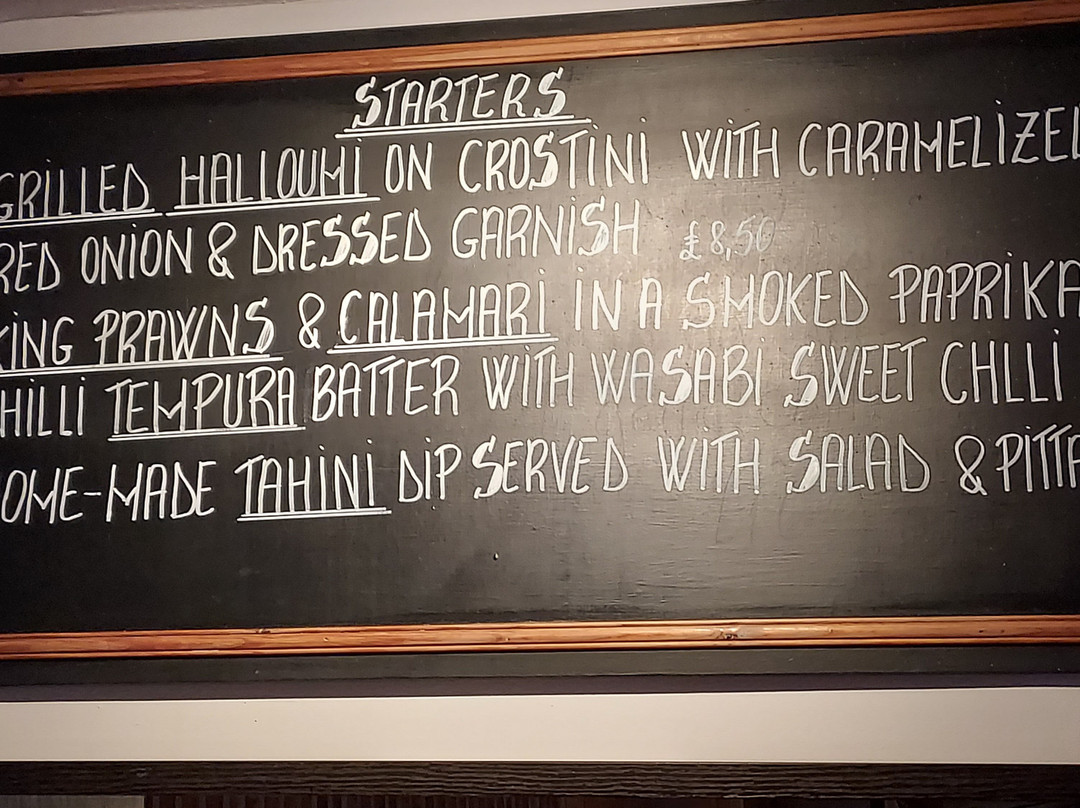 STARTERS
GRILLED HALLOUMI ON CROSTINI WITH CARAMELIZE
RED ONION & DRESSED GARNISH £8,50
KING PRAWNS & CALAMARI IN A SMOKED PAPRIKA
HILLI TEMPURA BATTER WITH WASABI SWEET CHLLI
OME-MADE TAHINI DIP SERVED WITH SALAD & PITTA